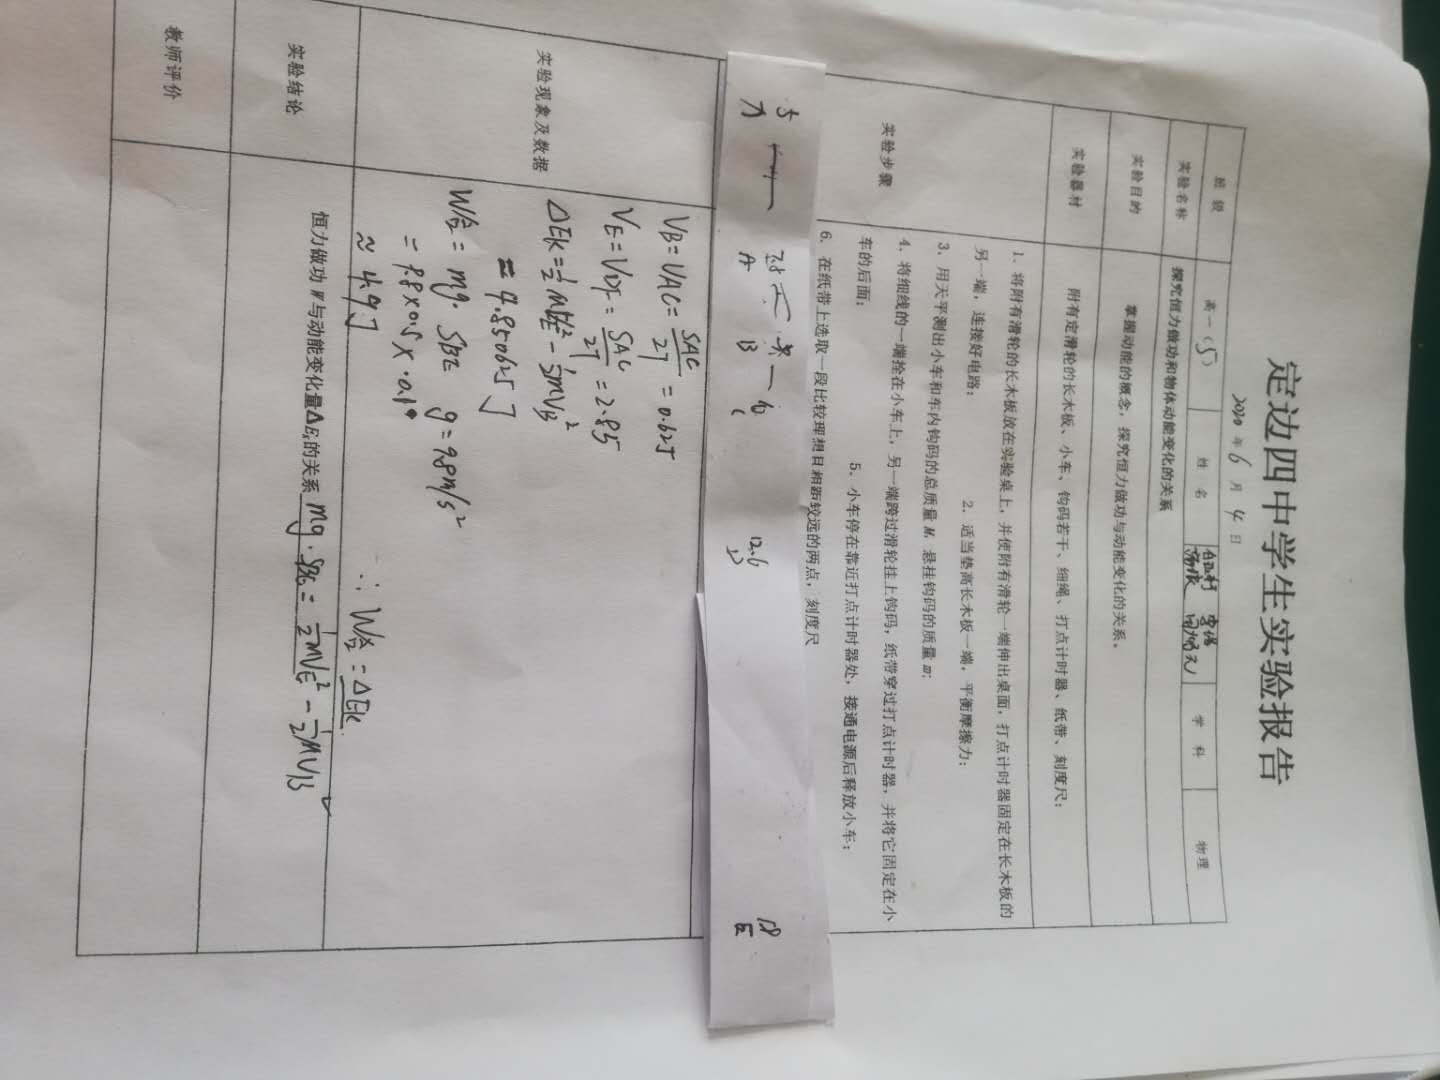 定边四中学生实验报告
2020年6月4日
班级 高一（5） 姓名 学科 物理
实验名称 探究恒力做功和物体动能变化的关系
实验目的 掌握动能的概念，探究恒力做功与动能变化的关系。
实验器材 附有定滑轮的长木板、小车、钩码若干、细绳、打点计时器、纸带、刻度尺；
实验步骤
1、将附有滑轮的长木板放在实验桌上，并使附有滑轮一端伸出桌面，打点计时器固定在长木板的
另一端，连接好电路；
2、适当垫高长木板一端，平衡摩擦力；
3、用天平测出小车和车内钩码的总质量M，悬挂钩码的质量m；
4、将细线的一端拴在小车上，另一端跨过滑轮挂上钩码，纸带穿过打点计时器，并将它固定在小
车的后面；
5、小车停在靠近打点计时器处，接通电源后释放小车；
6、在纸带上选取一段比较理想且相距较远的两点，刻度尺
12.6 18
A B C D E
实验现象及数据
VB=VAC=SAC/2T=0.625
VE=VDF=SAC/2T=2.85
ΔEk=½MVE²-½MVB²
=4.850625J
W合=mg·SBE g=9.8m/s²
=9.8×0.5×0.10
≈4.9J
∴W合=ΔEk
实验结论
恒力做功W与动能变化量ΔEk的关系 mg·SBE=½MVE²-½MVB²
教师评价